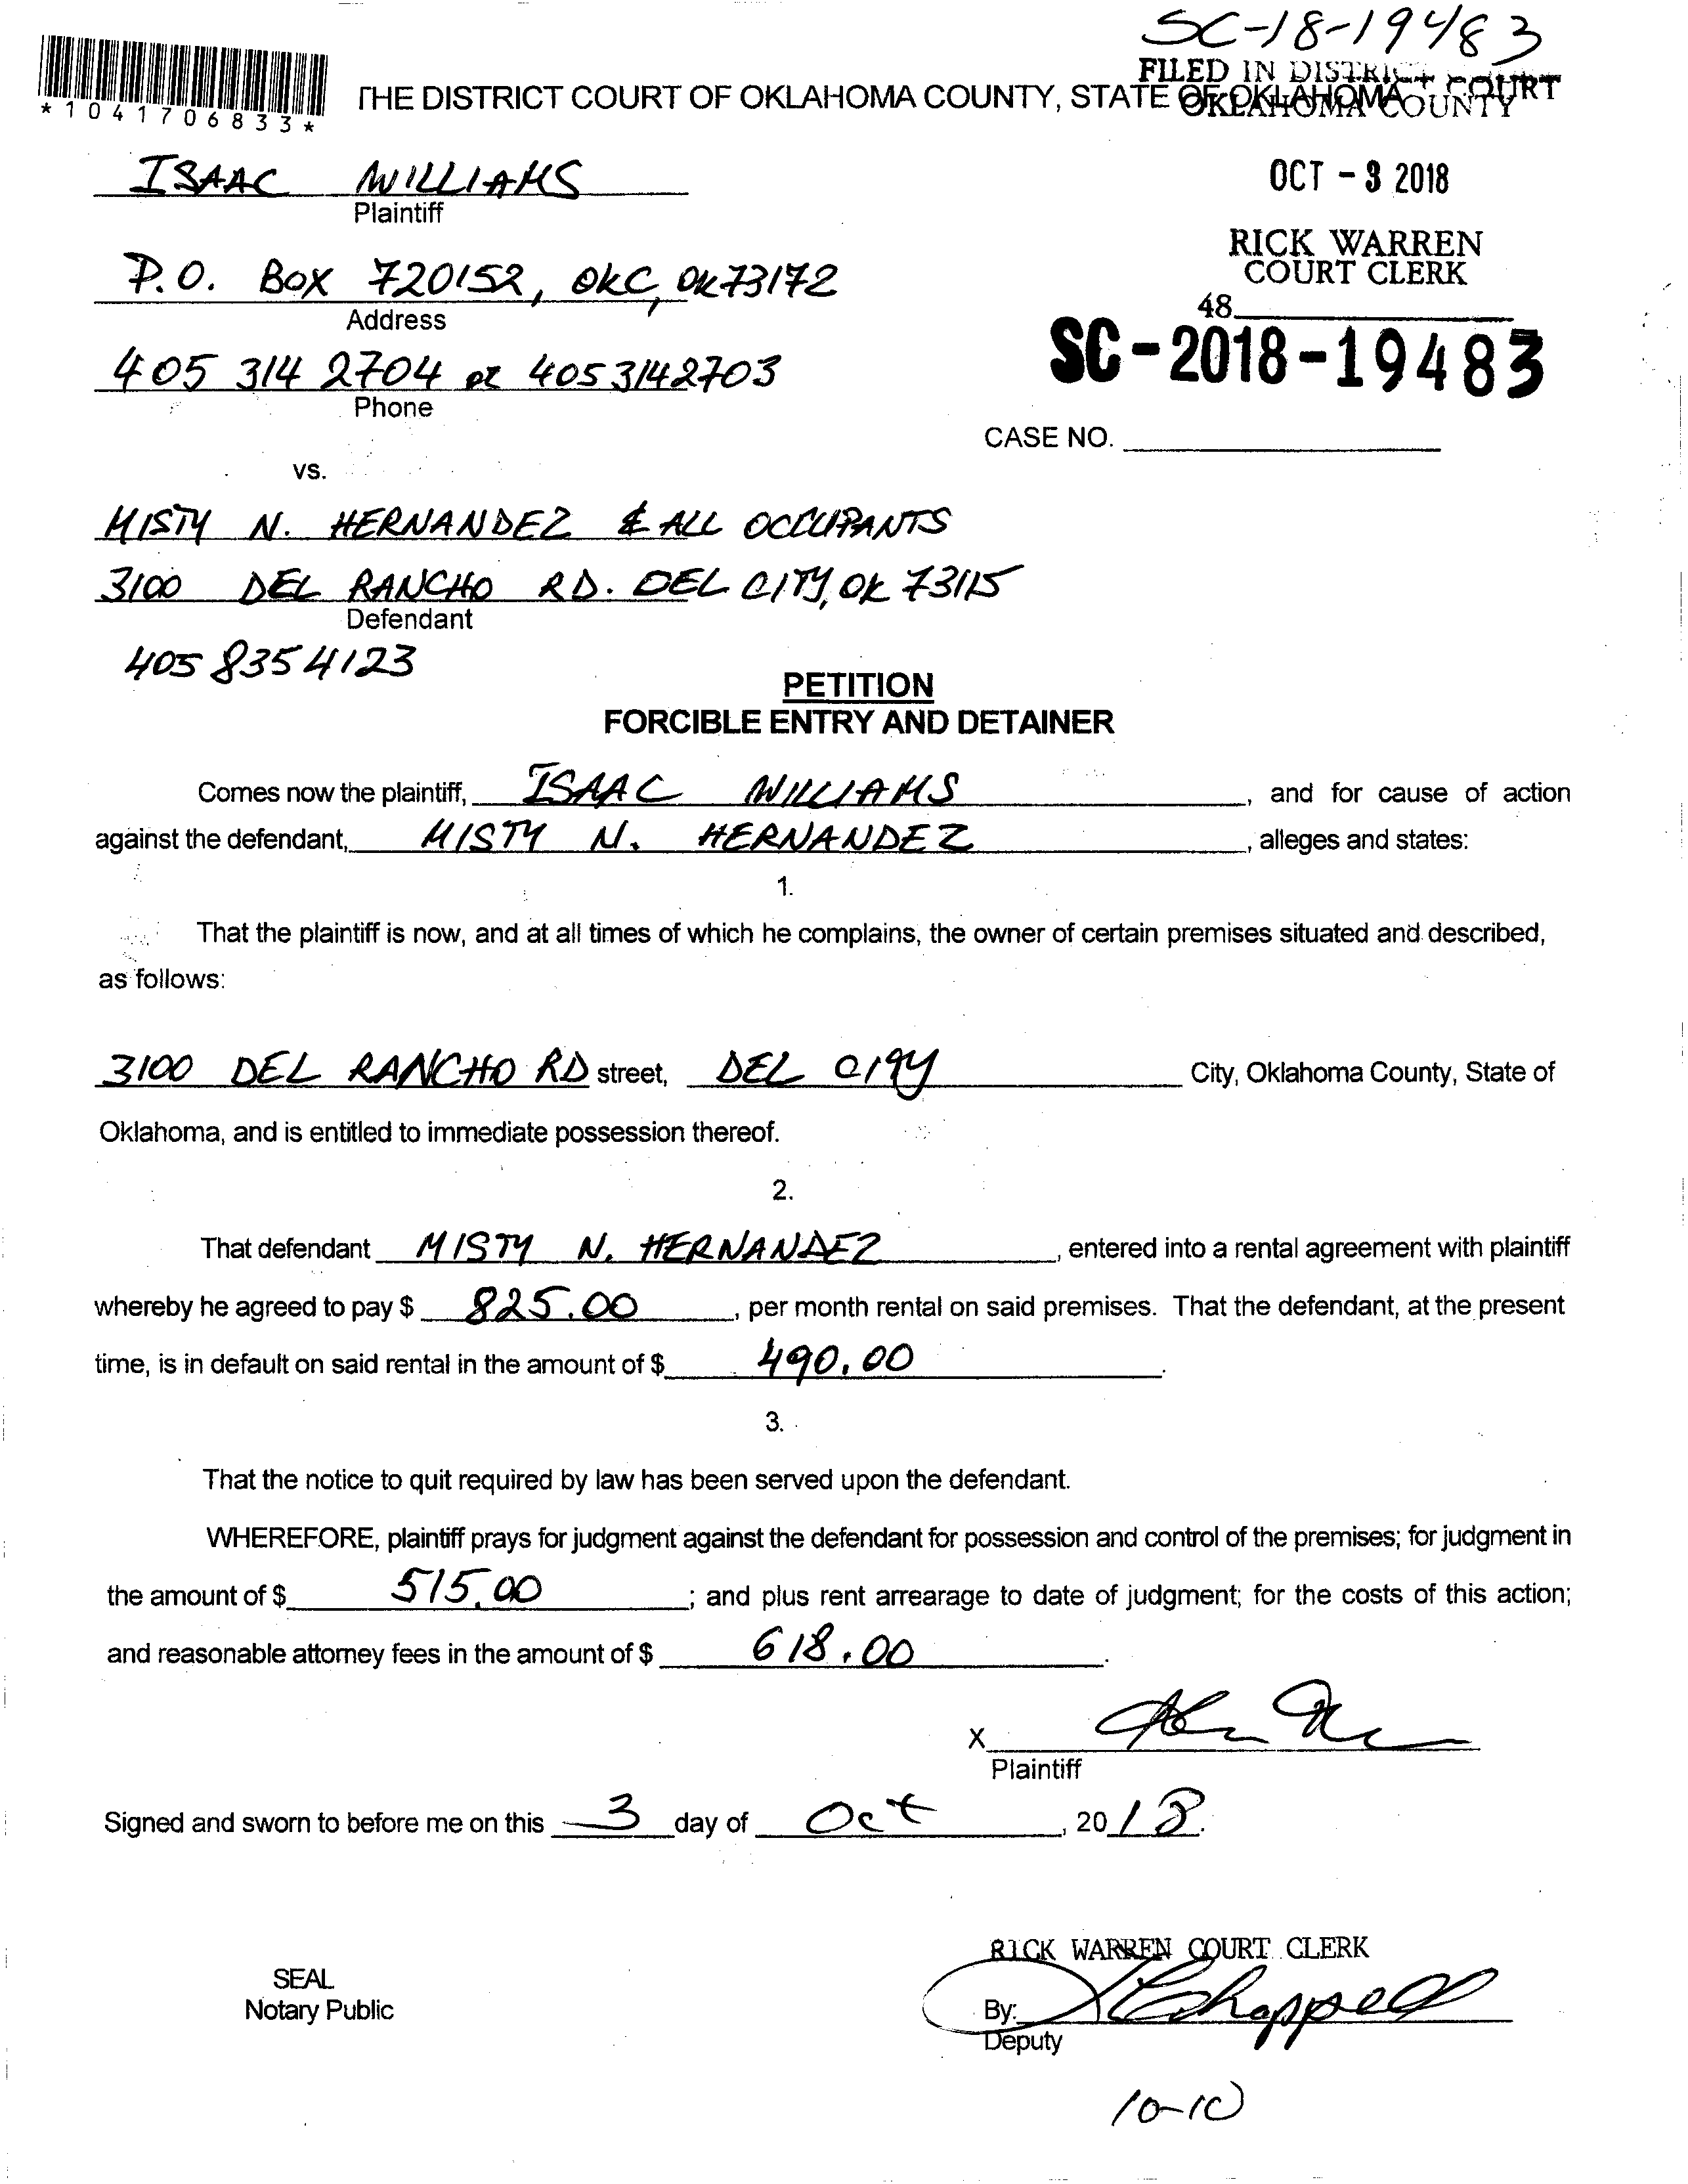 SC-18-19483
FILED IN DISTRICT COURT
OKLAHOMA COUNTY
*1041706833*
THE DISTRICT COURT OF OKLAHOMA COUNTY, STATE OF OKLAHOMA
ISAAC WILLIAMS
Plaintiff
OCT - 3 2018
P.O. BOX 720152, OKC, OK 73172
Address
RICK WARREN
COURT CLERK
48
405 314 2704 or 405 314 2703
Phone
SC-2018-19483
CASE NO.
vs.
MISTY N. HERNANDEZ & ALL OCCUPANTS
3100 DEL RANCHO RD. DEL CITY, OK 73115
Defendant
405 835 4123
PETITION
FORCIBLE ENTRY AND DETAINER
Comes now the plaintiff, ISAAC WILLIAMS, and for cause of action
against the defendant, MISTY N. HERNANDEZ, alleges and states:
1.
That the plaintiff is now, and at all times of which he complains, the owner of certain premises situated and described,
as follows:
3100 DEL RANCHO RD street, DEL CITY City, Oklahoma County, State of
Oklahoma, and is entitled to immediate possession thereof.
2.
That defendant MISTY N. HERNANDEZ, entered into a rental agreement with plaintiff
whereby he agreed to pay $ 825.00, per month rental on said premises. That the defendant, at the present
time, is in default on said rental in the amount of $ 490.00.
3.
That the notice to quit required by law has been served upon the defendant.
WHEREFORE, plaintiff prays for judgment against the defendant for possession and control of the premises; for judgment in
the amount of $ 515.00; and plus rent arrearage to date of judgment; for the costs of this action;
and reasonable attorney fees in the amount of $ 618.00.
X
Plaintiff
Signed and sworn to before me on this 3 day of Oct, 2018.
RICK WARREN COURT CLERK
SEAL
Notary Public
By: Chappell
Deputy
10-10